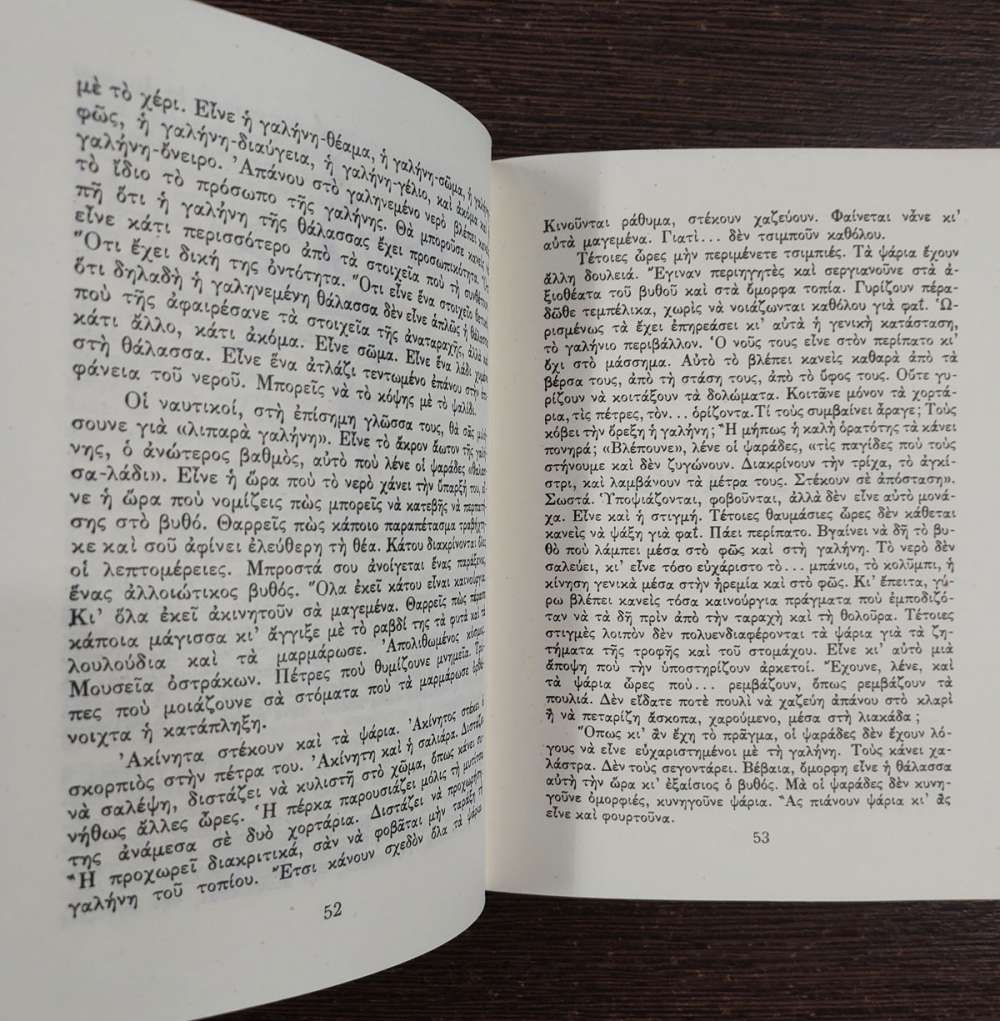 μὲ τὸ χέρι. Εἶνε ἡ γαλήνη-θέαμα, ἡ γαλήνη-σῶμα, ἡ γαλήνη-
φῶς, ἡ γαλήνη-διαύγεια, ἡ γαλήνη-γέλιο, καὶ ἀκόμα κι' ἡ
γαλήνη-ὄνειρο. Ἀπάνου στὸ γαληνεμένο νερὸ βλέπει κανεὶς
τὸ ἴδιο τὸ πρόσωπο τῆς γαλήνης. Θὰ μποροῦσε κανεὶς νὰ
πῆ ὅτι ἡ γαλήνη τῆς θάλασσας ἔχει προσωπικότητα. Ὅτι
εἶνε κάτι περισσότερο ἀπὸ τὰ στοιχεῖα ποὺ τὴ συνθέτουν.
Ὅτι ἔχει δική της ὀντότητα. Ὅτι εἶνε ἕνα στοιχεῖο θετικό,
ὅτι δηλαδὴ ἡ γαληνεμένη θάλασσα δὲν εἶνε ἁπλῶς ἡ θάλασσα
ποὺ τῆς ἀφαιρέσανε τὰ στοιχεῖα τῆς ἀναταραχῆς, ἀλλὰ καὶ
κάτι ἄλλο, κάτι ἀκόμα. Εἶνε σῶμα. Εἶνε ἕνα λάδι χυμένο
στὴ θάλασσα. Εἶνε ἕνα ἀτλάζι τεντωμένο ἐπάνου στὴν ἐπι-
φάνεια τοῦ νεροῦ. Μπορεῖς νὰ τὸ κόψης μὲ τὸ ψαλίδι.
Οἱ ναυτικοί, στὴ ἐπίσημη γλῶσσα τους, θὰ σᾶς μιλή-
σουνε γιὰ «λιπαρὰ γαλήνη». Εἶνε τὸ ἄκρον ἄωτον τῆς γαλή-
νης, ὁ ἀνώτερος βαθμός, αὐτὸ ποὺ λένε οἱ ψαράδες «θαλασ-
σα-λάδι». Εἶνε ἡ ὥρα ποὺ τὸ νερὸ χάνει τὴν ὕπαρξή του, εἶ-
νε ἡ ὥρα ποὺ νομίζεις πὼς μπορεῖς νὰ κατεβῆς νὰ περπατή-
σης στὸ βυθό. Θαρρεῖς πὼς κάποιο παραπέτασμα τραβήχτη-
κε καὶ σοῦ ἀφίνει ἐλεύθερη τὴ θέα. Κάτου διακρίνονται ὅλες
οἱ λεπτομέρειες. Μπροστά σου ἀνοίγεται ἕνας παράξενος,
ἕνας ἀλλοιώτικος βυθός. Ὅλα ἐκεῖ κάτου εἶναι καινούργια.
Κι' ὅλα ἐκεῖ ἀκινητοῦν σὰ μαγεμένα. Θαρρεῖς πὼς πέρασε
κάποια μάγισσα κι' ἄγγιξε μὲ τὸ ραβδί της τὰ φυτὰ καὶ τὰ
λουλούδια καὶ τὰ μαρμάρωσε. Ἀπολιθωμένος κόσμος.
Μουσεῖα ὀστράκων. Πέτρες ποὺ θυμίζουνε μνημεῖα. Τρύ-
πες ποὺ μοιάζουνε σὰ στόματα ποὺ τὰ μαρμάρωσε ὀρθά-
νοιχτα ἡ κατάπληξη.
Ἀκίνητα στέκουν καὶ τὰ ψάρια. Ἀκίνητος στέκει ὁ
σκορπιὸς στὴν πέτρα του. Ἀκίνητη καὶ ἡ σαλιάρα. Διστάζει
νὰ σαλέψη, διστάζει νὰ κυλιστῆ στὸ χῶμα, ὅπως κάνει συ-
νήθως ἄλλες ὧρες. Ἡ πέρκα παρουσιάζει μόλις τὴ μυτίτσα
της ἀνάμεσα σὲ δυὸ χορτάρια. Διστάζει νὰ προχωρήση.
Ἢ προχωρεῖ διακριτικά, σὰν νὰ φοβᾶται μὴν ταράξη τὴ
γαλήνη τοῦ τοπίου. Ἔτσι κάνουν σχεδὸν ὅλα τὰ ψάρια.
52
Κινοῦνται ράθυμα, στέκουν χαζεύουν. Φαίνεται νἆνε κι'
αὐτὰ μαγεμένα. Γιατὶ... δὲν τσιμποῦν καθόλου.
Τέτοιες ὧρες μὴν περιμένετε τσιμπιές. Τὰ ψάρια ἔχουν
ἄλλη δουλειά. Ἔγιναν περιηγητὲς καὶ σεργιανοῦνε στὰ ἀ-
ξιοθέατα τοῦ βυθοῦ καὶ στὰ ὄμορφα τοπία. Γυρίζουν πέρα-
δῶθε τεμπέλικα, χωρὶς νὰ νοιάζωνται καθόλου γιὰ φαΐ. Ὡ-
ρισμένως τὰ ἔχει ἐπηρεάσει κι' αὐτὰ ἡ γενικὴ κατάσταση,
τὸ γαλήνιο περιβάλλον. Ὁ νοῦς τους εἶνε στὸν περίπατο κι'
ὄχι στὸ μάσσημα. Αὐτὸ τὸ βλέπει κανεὶς καθαρὰ ἀπὸ τὰ
βέρσα τους, ἀπὸ τὴ στάση τους, ἀπὸ τὸ ὕφος τους. Οὔτε γυ-
ρίζουν νὰ κοιτάξουν τὰ δολώματα. Κοιτᾶνε μόνον τὰ χορτά-
ρια, τὶς πέτρες, τὸν... ὁρίζοντα. Τί τοὺς συμβαίνει ἄραγε; Τοὺς
κόβει τὴν ὄρεξη ἡ γαλήνη; Ἢ μήπως ἡ καλὴ ὁρατότης τὰ κάνει
πονηρά; «Βλέπουνε», λένε οἱ ψαράδες, «τὶς παγίδες ποὺ τοὺς
στήνουμε καὶ δὲν ζυγώνουν. Διακρίνουν τὴν τρίχα, τὸ ἀγκί-
στρι, καὶ λαμβάνουν τὰ μέτρα τους. Στέκουν σὲ ἀπόσταση».
Σωστά. Ὑποψιάζονται, φοβοῦνται, ἀλλὰ δὲν εἶνε αὐτὸ μονά-
χα. Εἶνε καὶ ἡ στιγμή. Τέτοιες θαυμάσιες ὧρες δὲν κάθεται
κανεὶς νὰ ψάξη γιὰ φαΐ. Πάει περίπατο. Βγαίνει νὰ δῆ τὸ βυ-
θὸ ποὺ λάμπει μέσα στὸ φῶς καὶ στὴ γαλήνη. Τὸ νερὸ δὲν
σαλεύει, κι' εἶνε τόσο εὐχάριστο τὸ... μπάνιο, τὸ κολύμπι, ἡ
κίνηση γενικὰ μέσα στὴν ἠρεμία καὶ στὸ φῶς. Κι' ἔπειτα, γύ-
ρω βλέπει κανεὶς τόσα καινούργια πράγματα ποὺ ἐμποδιζό-
ταν νὰ τὰ δῆ πρὶν ἀπὸ τὴν ταραχὴ καὶ τὴ θολοῦρα. Τέτοιες
στιγμὲς λοιπὸν δὲν πολυενδιαφέρονται τὰ ψάρια γιὰ τὰ ζη-
τήματα τῆς τροφῆς καὶ τοῦ στομάχου. Εἶνε κι' αὐτὸ μιὰ
ἄποψη ποὺ τὴν ὑποστηρίζουν ἀρκετοί. Ἔχουνε, λένε, καὶ
τὰ ψάρια ὧρες ποὺ... ρεμβάζουν, ὅπως ρεμβάζουν τὰ
πουλιά. Δὲν εἴδατε ποτὲ πουλὶ νὰ χαζεύη ἀπάνου στὸ κλαρὶ
ἢ νὰ πεταρίζη ἄσκοπα, χαρούμενο, μέσα στὴ λιακάδα;
Ὅπως κι' ἂν ἔχη τὸ πρᾶγμα, οἱ ψαράδες δὲν ἔχουν λό-
γους νὰ εἶνε εὐχαριστημένοι μὲ τὴ γαλήνη. Τοὺς κάνει χα-
λάστρα. Δὲν τοὺς σεγοντάρει. Βέβαια, ὄμορφη εἶνε ἡ θάλασσα
αὐτὴ τὴν ὥρα κι' ἐξαίσιος ὁ βυθός. Μὰ οἱ ψαράδες δὲν κυνη-
γοῦνε ὀμορφιές, κυνηγοῦνε ψάρια. Ἂς πιάνουν ψάρια κι' ἂς
εἶνε καὶ φουρτοῦνα.
53